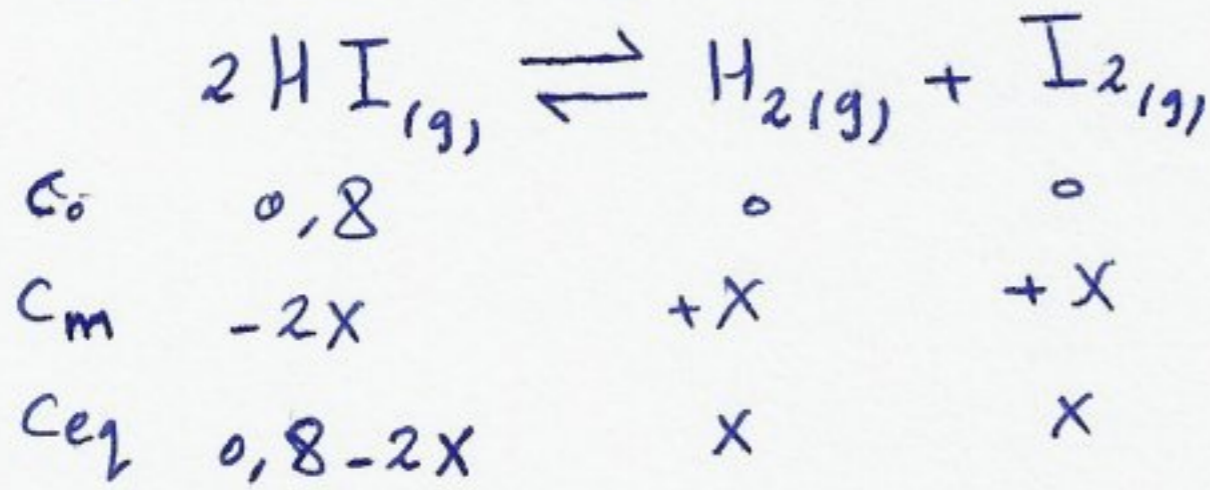 2HI(g) ⇌ H2(g) + I2(g)
C₀ 0,8 0 0
Cm -2X +X +X
Ceq 0,8-2X X X